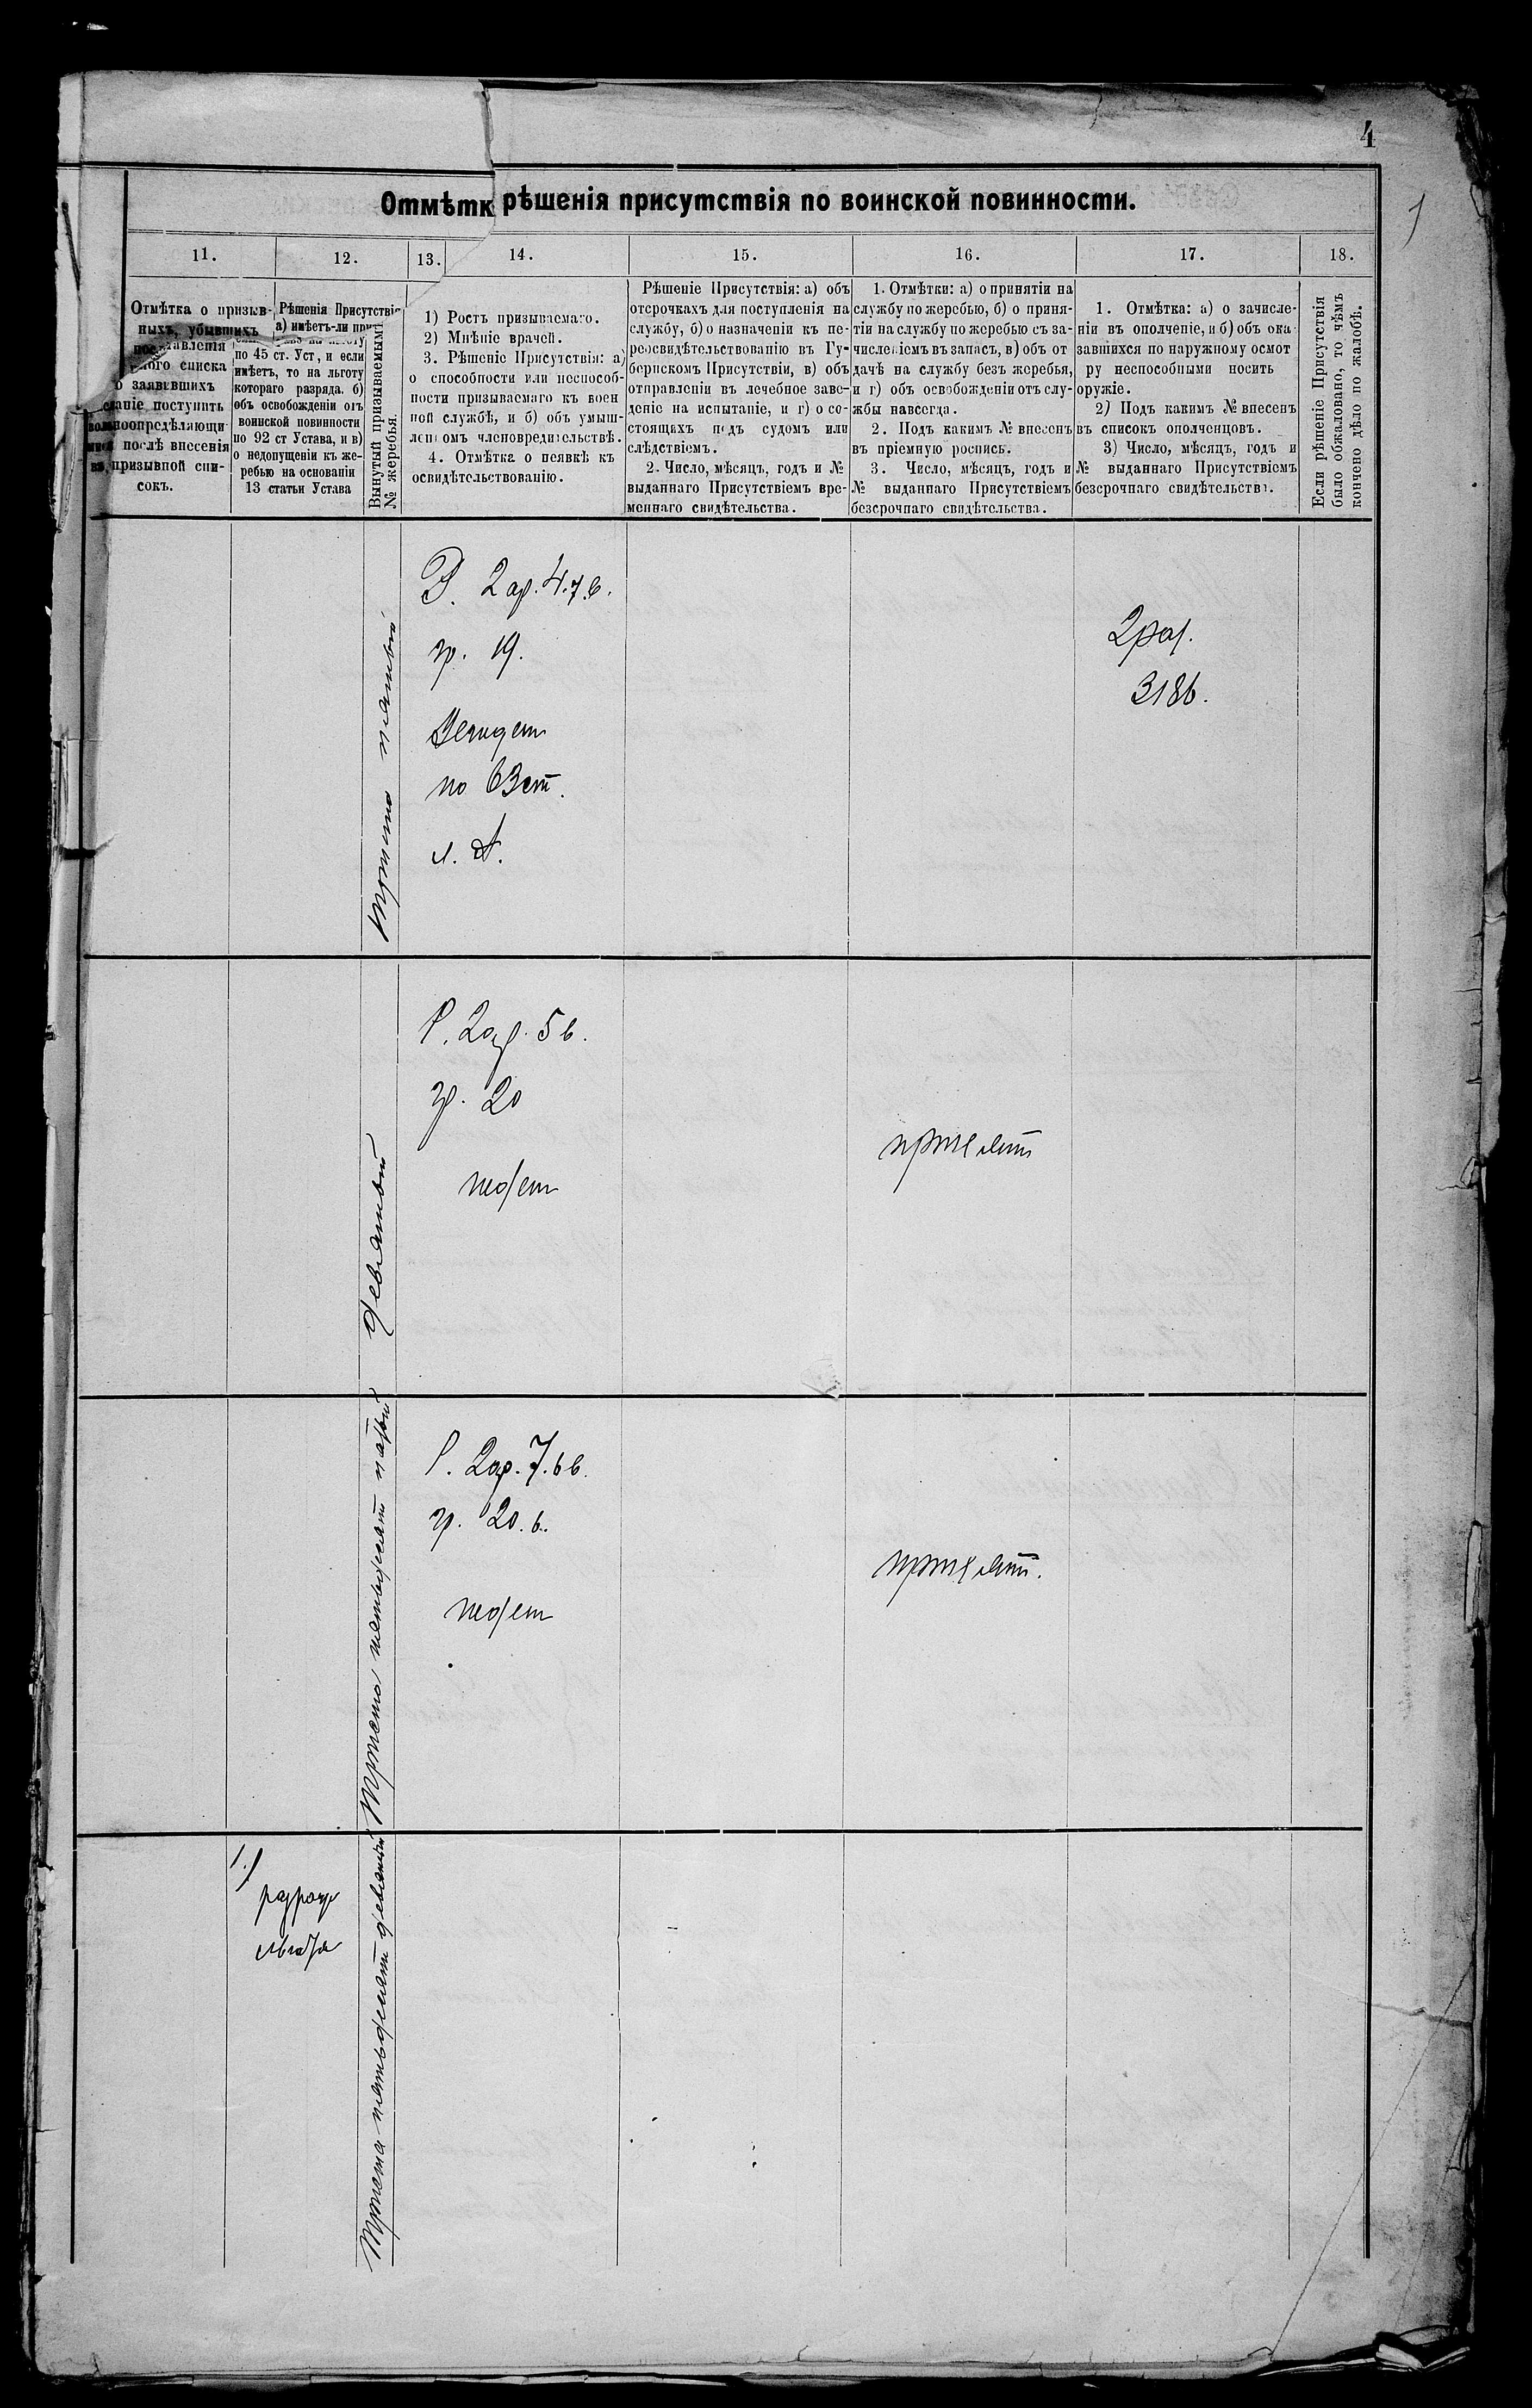 4
Отмѣтк рѣшенія присутствія по воинской повинности.
11.
12.
13.
14.
15.
16.
17.
18.
Отмѣтка о призыв-
ныхъ, убывшихъ
списка
заявившихъ
поступить
послѣ внесенія
призывной спи-
сокъ.
Рѣшенія Присутствія
а) имѣетъ-ли
по 45 ст. Уст, и если
имѣетъ, то на льготу
котораго разряда. б)
объ освобожденіи отъ
воинской повинности
по 92 ст Устава, и в)
о недопущеніи къ же-
ребью на основаніи
13 статьи Устава
Вынутый призываемымъ
№ жеребья.
1) Ростъ призываемаго.
2) Мнѣніе врачей.
3. Рѣшеніе Присутствія: а)
о способности или неспособ-
ности призываемаго къ воен
ной службѣ, и б) объ умыш-
леномъ членовредительствѣ.
4. Отмѣтка о неявкѣ къ
освидѣтельствованію.
Рѣшеніе Присутствія: а) объ
отсрочкахъ для поступленія на
службу, б) о назначеніи къ пе-
реосвидѣтельствованію въ Гу-
бернскомъ Присутствіи, в) объ
отправленіи въ лечебное заве-
деніе на испытаніе, и г) о со-
стоящахъ подъ судомъ или
слѣдствіемъ.
2. Число, мѣсяцъ, годъ и №
выданнаго Присутствіемъ вре-
меннаго свидѣтельства.
1. Отмѣтки: а) о принятіи на
службу по жеребью, б) о приня-
тіи на службу по жеребью съ за-
численіемъ въ запасъ, в) объ от
дачѣ на службу безъ жеребья,
и г) объ освобожденіи отъ слу-
жбы навсегда.
2. Подъ какимъ № внесенъ
въ пріемную роспись.
3. Число, мѣсяцъ, годъ и
№ выданнаго Присутствіемъ
безсрочнаго свидѣтельства.
1. Отмѣтка: а) о зачисле-
ніи въ ополченіе, и б) объ ока
завшихся по наружному осмот
ру неспособными носить
оружіе.
2) Подъ какимъ № внесенъ
въ списокъ ополченцовъ.
3) Число, мѣсяцъ, годъ и
№ выданнаго Присутствіемъ
безсрочнаго свидѣтельства.
Если рѣшеніе Присутствія
было обжаловано, то чѣмъ
кончено дѣло по жалобѣ.
Триста пятый
Р. 2 ар. 4. 7. в.
гр. 19.
по 63 ст.
л. А.
2 раз.
3186.
девятый
Р. 2 ар. 5 в.
гр. 20
годен
принят
Триста пятьдесят
Р. 2 ар. 7. 6 в.
гр. 20. в.
годен
принят.
1.)
разряда
льгота
Триста пятьдесят девятый